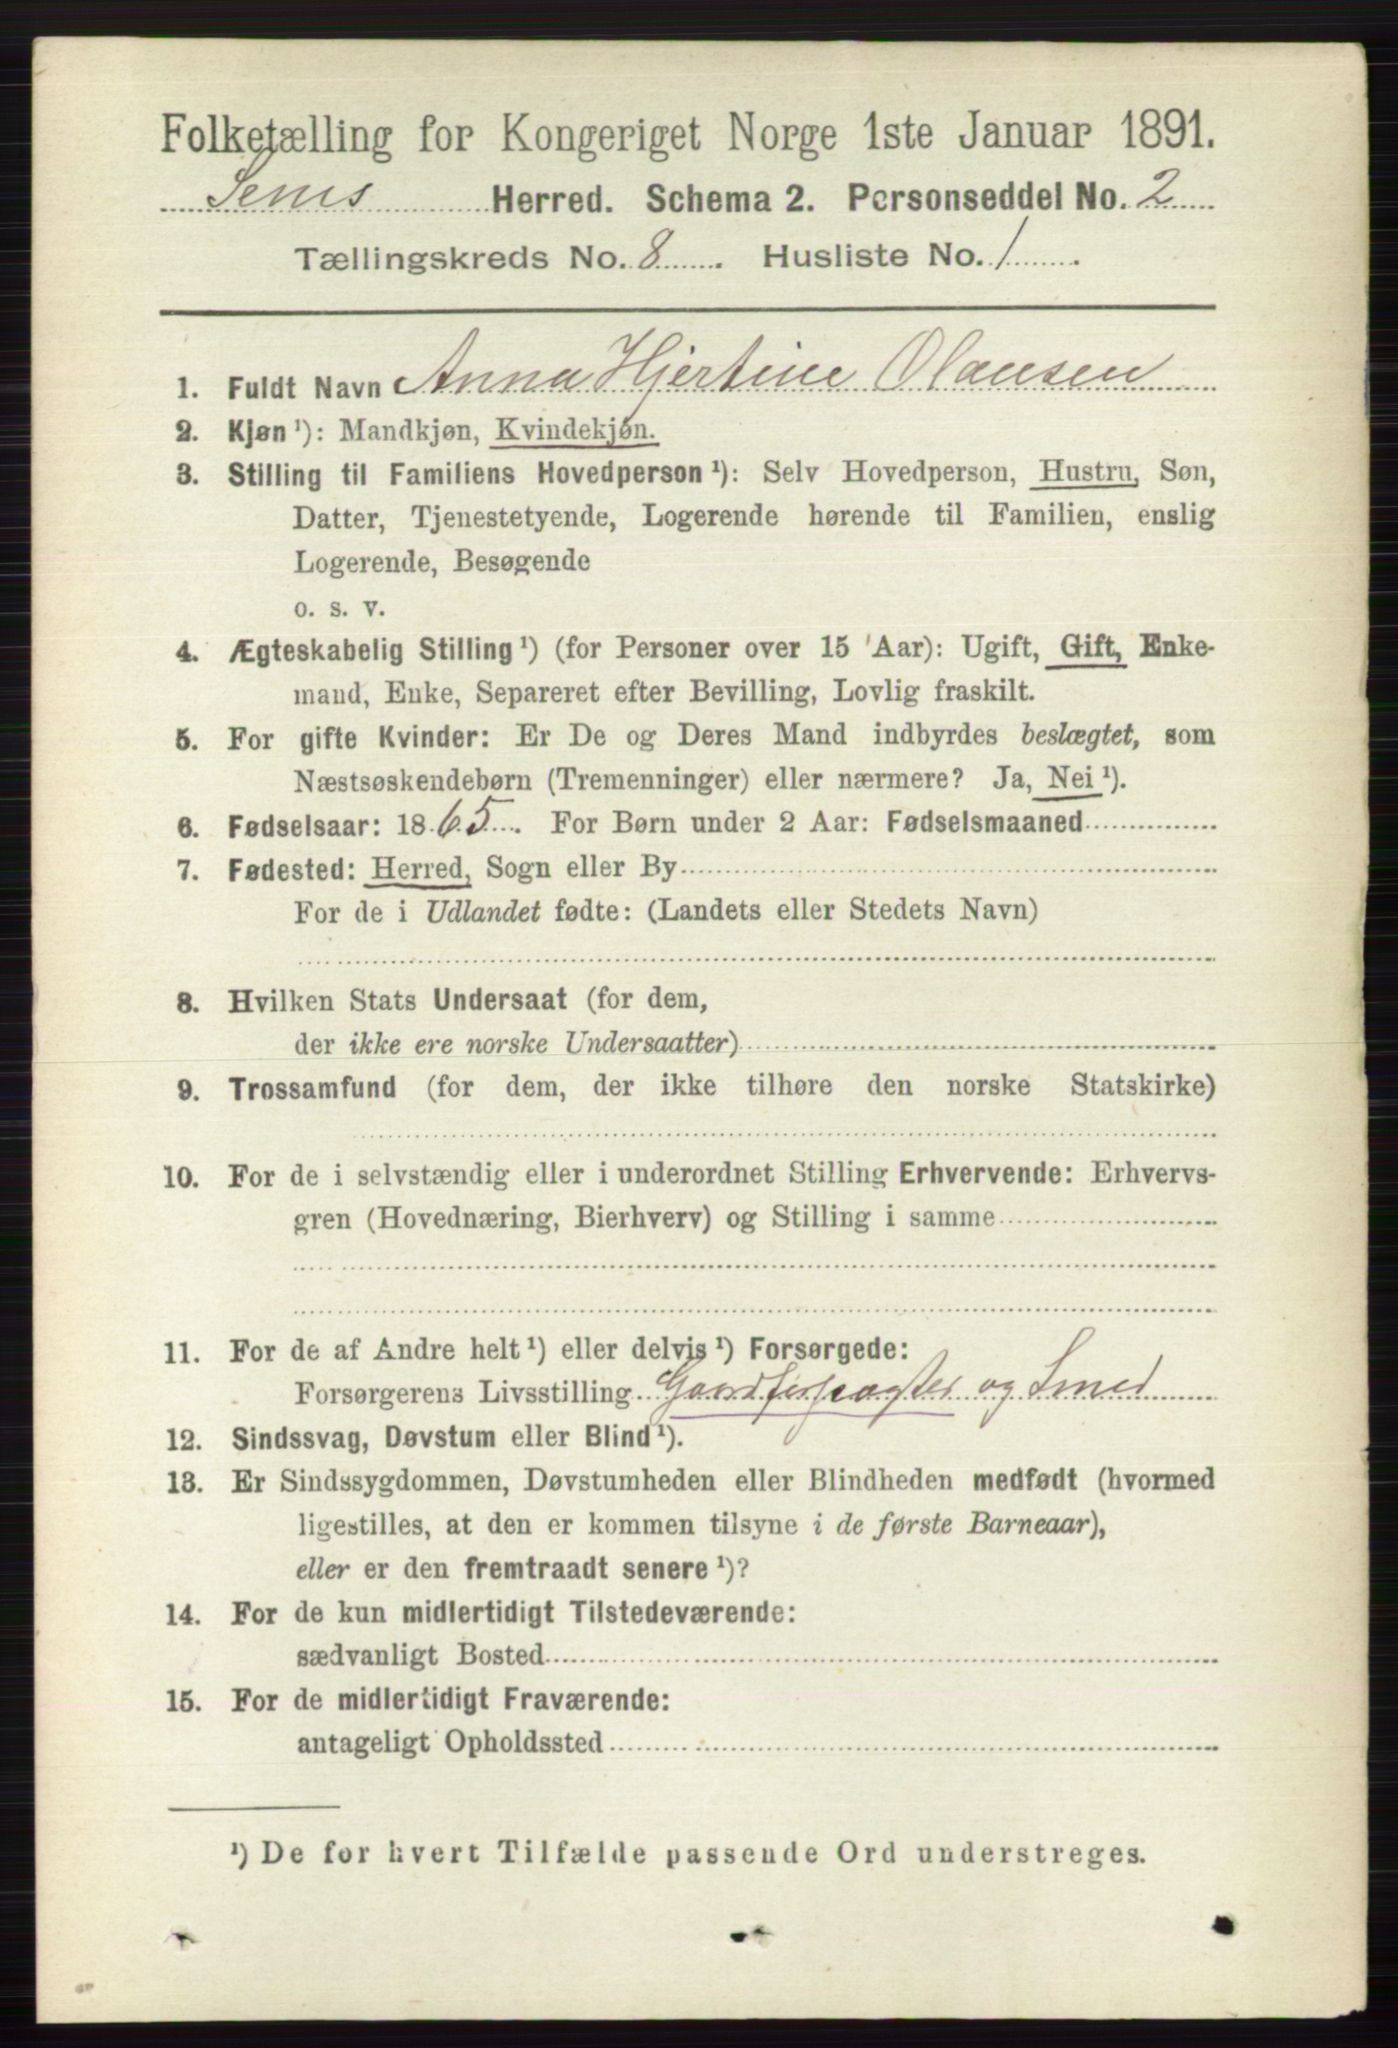 Folketælling for Kongeriget Norge 1ste Januar 1891.
Sems Herred. Schema 2. Personseddel No. 2
Tællingskreds No. 8 Husliste No. 1
1. Fuldt Navn Anna Hjertine Olausen
2. Kjøn ¹): Mandkjøn, Kvindekjøn.
3. Stilling til Familiens Hovedperson ¹): Selv Hovedperson, Hustru, Søn,
Datter, Tjenestetyende, Logerende hørende til Familien, enslig
Logerende, Besøgende
o. s. v.
4. Ægteskabelig Stilling ¹) (for Personer over 15 Aar): Ugift, Gift, Enke-
mand, Enke, Separeret efter Bevilling, Lovlig fraskilt.
5. For gifte Kvinder: Er De og Deres Mand indbyrdes beslægtet, som
Næstsøskendebørn (Tremenninger) eller nærmere? Ja, Nei ¹).
6. Fødselsaar: 1865. For Børn under 2 Aar: Fødselsmaaned
7. Fødested: Herred, Sogn eller By
For de i Udlandet fødte: (Landets eller Stedets Navn)
8. Hvilken Stats Undersaat (for dem,
der ikke ere norske Undersaatter)
9. Trossamfund (for dem, der ikke tilhøre den norske Statskirke)
10. For de i selvstændig eller i underordnet Stilling Erhvervende: Erhvervs-
gren (Hovednæring, Bierhverv) og Stilling i samme
11. For de af Andre helt ¹) eller delvis ¹) Forsørgede:
Forsørgerens Livsstilling Gaardforpagter og Smed
12. Sindssvag, Døvstum eller Blind ¹).
13. Er Sindssygdommen, Døvstumheden eller Blindheden medfødt (hvormed
ligestilles, at den er kommen tilsyne i de første Barneaar),
eller er den fremtraadt senere ¹)?
14. For de kun midlertidigt Tilstedeværende:
sædvanligt Bosted
15. For de midlertidigt Fraværende:
antageligt Opholdssted
¹) De for hvert Tilfælde passende Ord understreges.